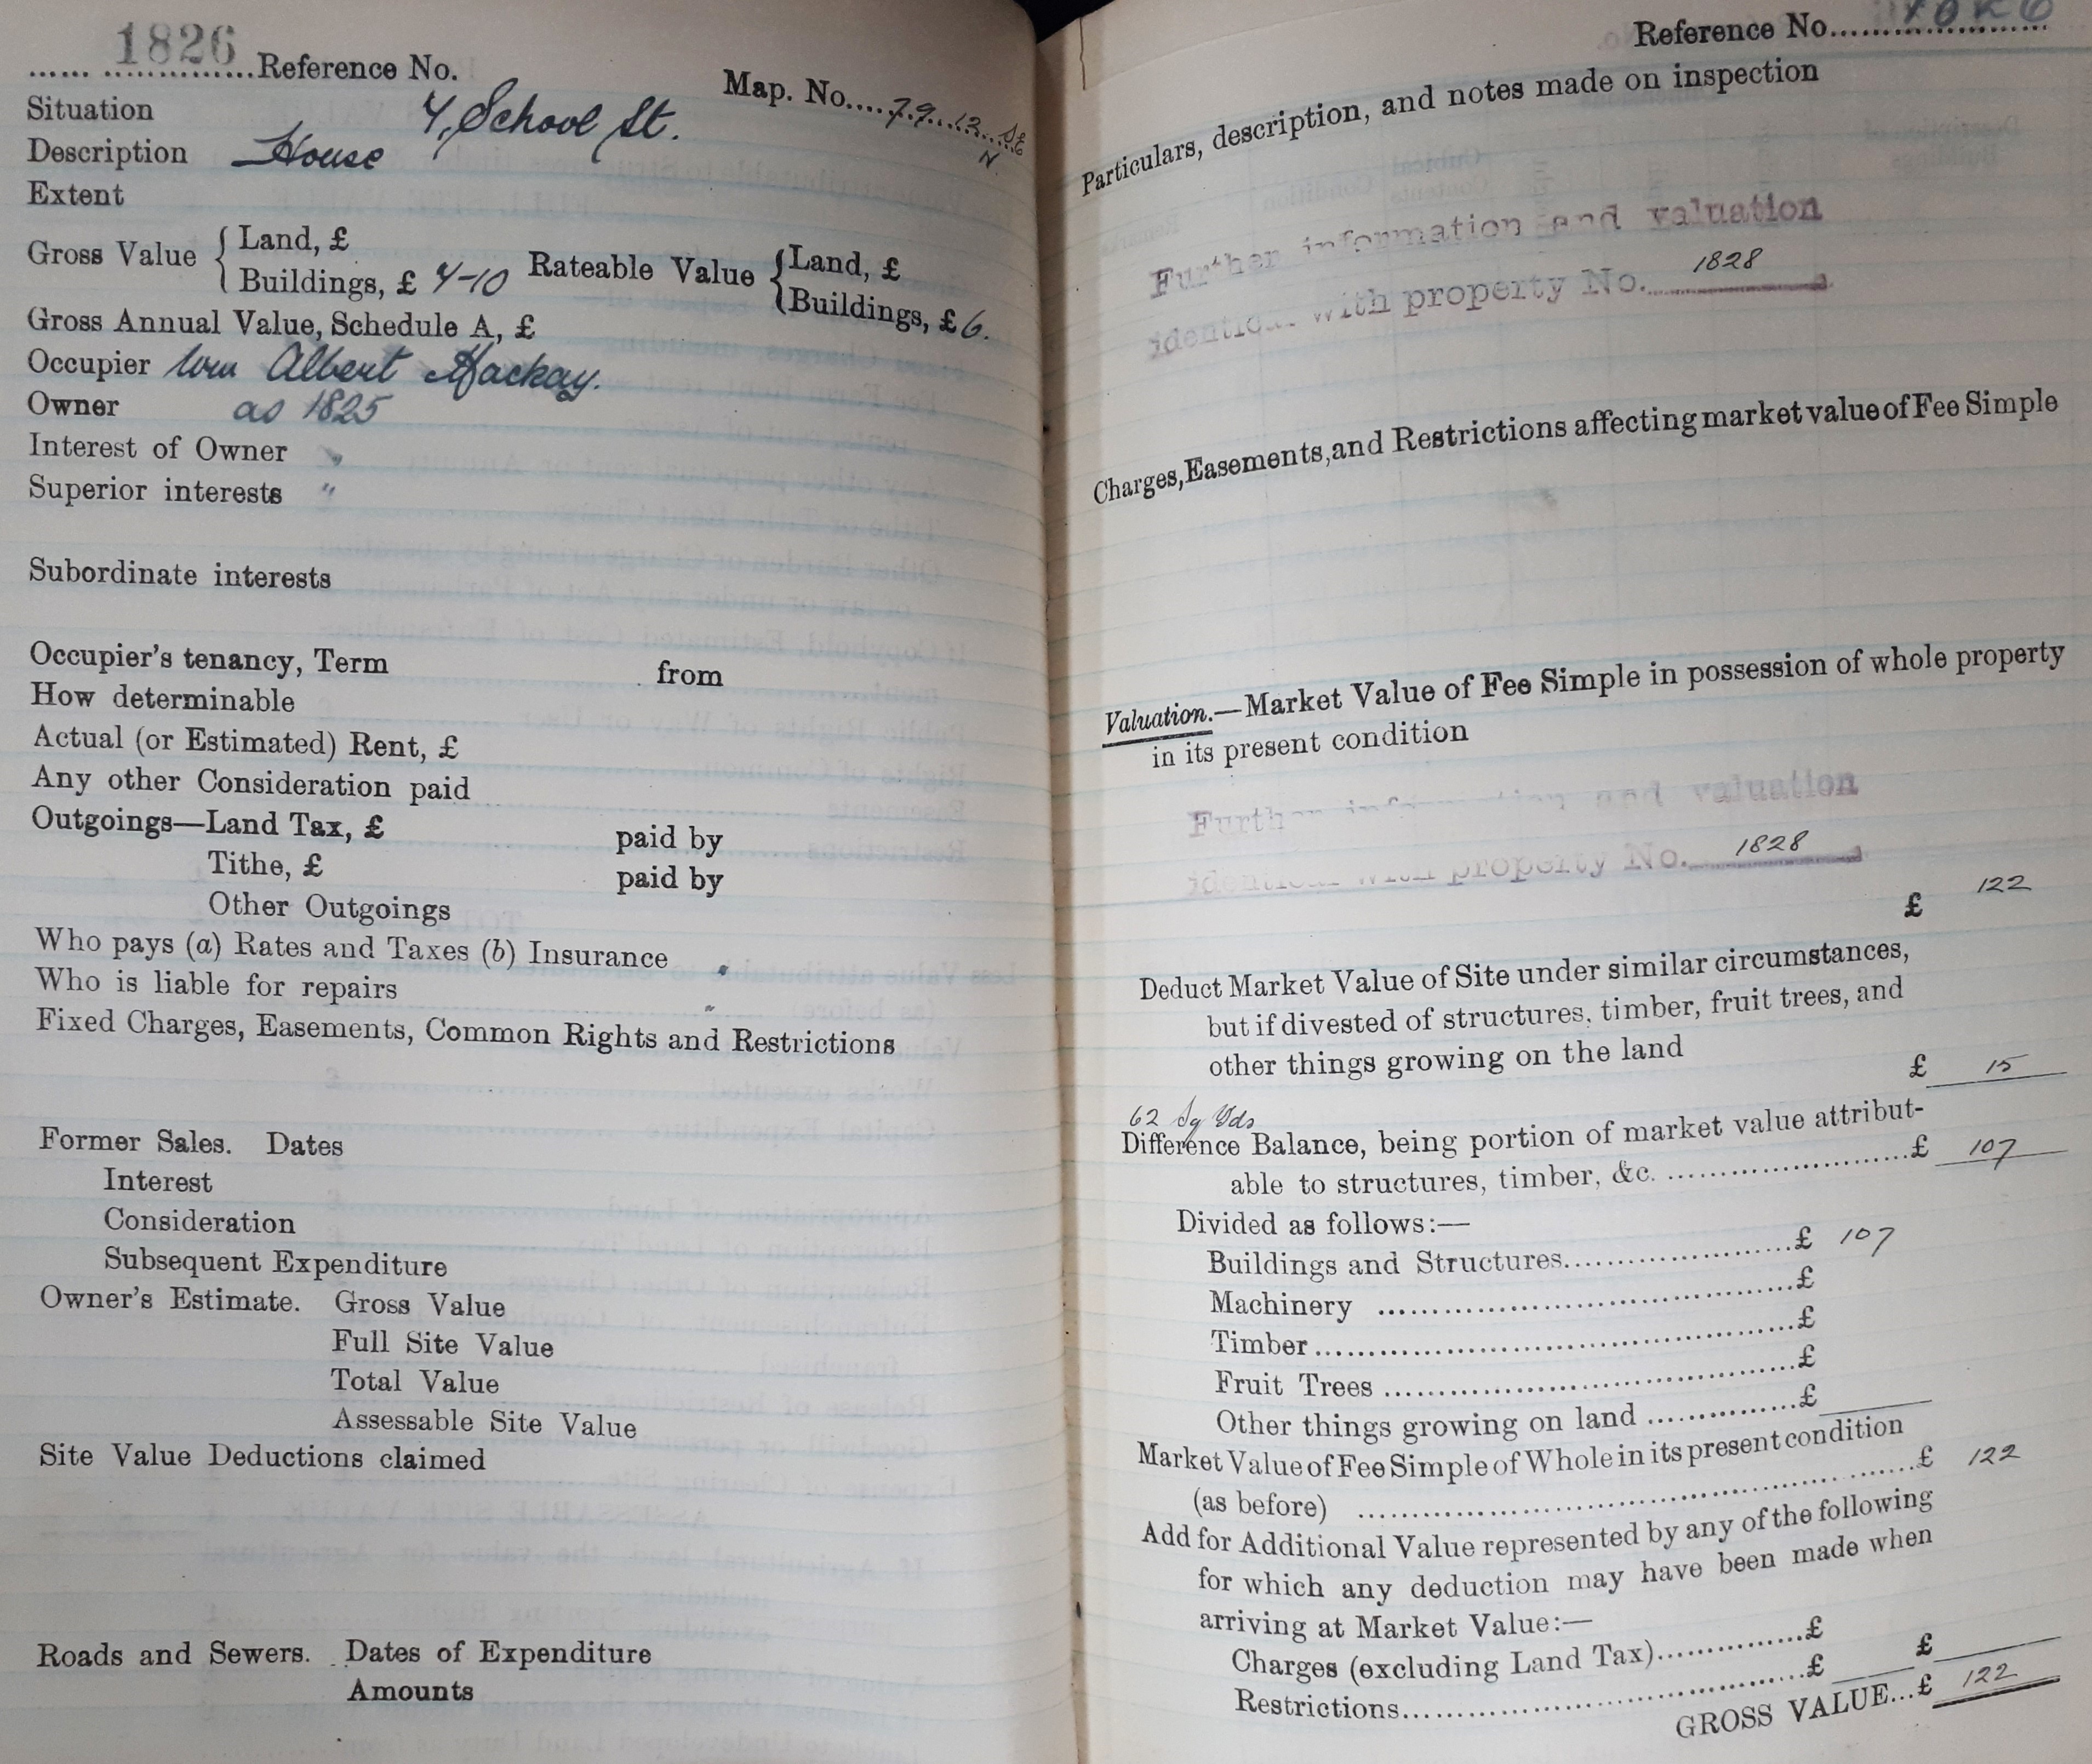 1826
Reference No.
Map. No. 79.12 SE
N.
Situation 4, School St.
Description House
Extent
Gross Value { Land, £
Buildings, £ 7-10
Rateable Value { Land, £
Buildings, £ 6.
Gross Annual Value, Schedule A, £
Occupier Wm Albert Mackay.
Owner as 1825
Interest of Owner "
Superior interests "
Subordinate interests
Occupier's tenancy, Term from
How determinable
Actual (or Estimated) Rent, £
Any other Consideration paid
Outgoings—Land Tax, £ paid by
Tithe, £ paid by
Other Outgoings
Who pays (a) Rates and Taxes (b) Insurance
Who is liable for repairs
Fixed Charges, Easements, Common Rights and Restrictions
Former Sales. Dates
Interest
Consideration
Subsequent Expenditure
Owner's Estimate. Gross Value
Full Site Value
Total Value
Assessable Site Value
Site Value Deductions claimed
Roads and Sewers. Dates of Expenditure
Amounts
Reference No.
Particulars, description, and notes made on inspection
Further information and valuation
identical with property No. 1828
Charges, Easements, and Restrictions affecting market value of Fee Simple
Valuation.—Market Value of Fee Simple in possession of whole property
in its present condition
Further information and valuation
identical with property No. 1828
£ 122
Deduct Market Value of Site under similar circumstances,
but if divested of structures, timber, fruit trees, and
other things growing on the land
£ 15
62 Sq Yds
Difference Balance, being portion of market value attribut-
able to structures, timber, &c. £ 107
Divided as follows:—
Buildings and Structures £ 107
Machinery £
Timber £
Fruit Trees £
Other things growing on land £
Market Value of Fee Simple of Whole in its present condition
(as before) £ 122
Add for Additional Value represented by any of the following
for which any deduction may have been made when
arriving at Market Value:—
Charges (excluding Land Tax) £
Restrictions £ £
GROSS VALUE...£ 122